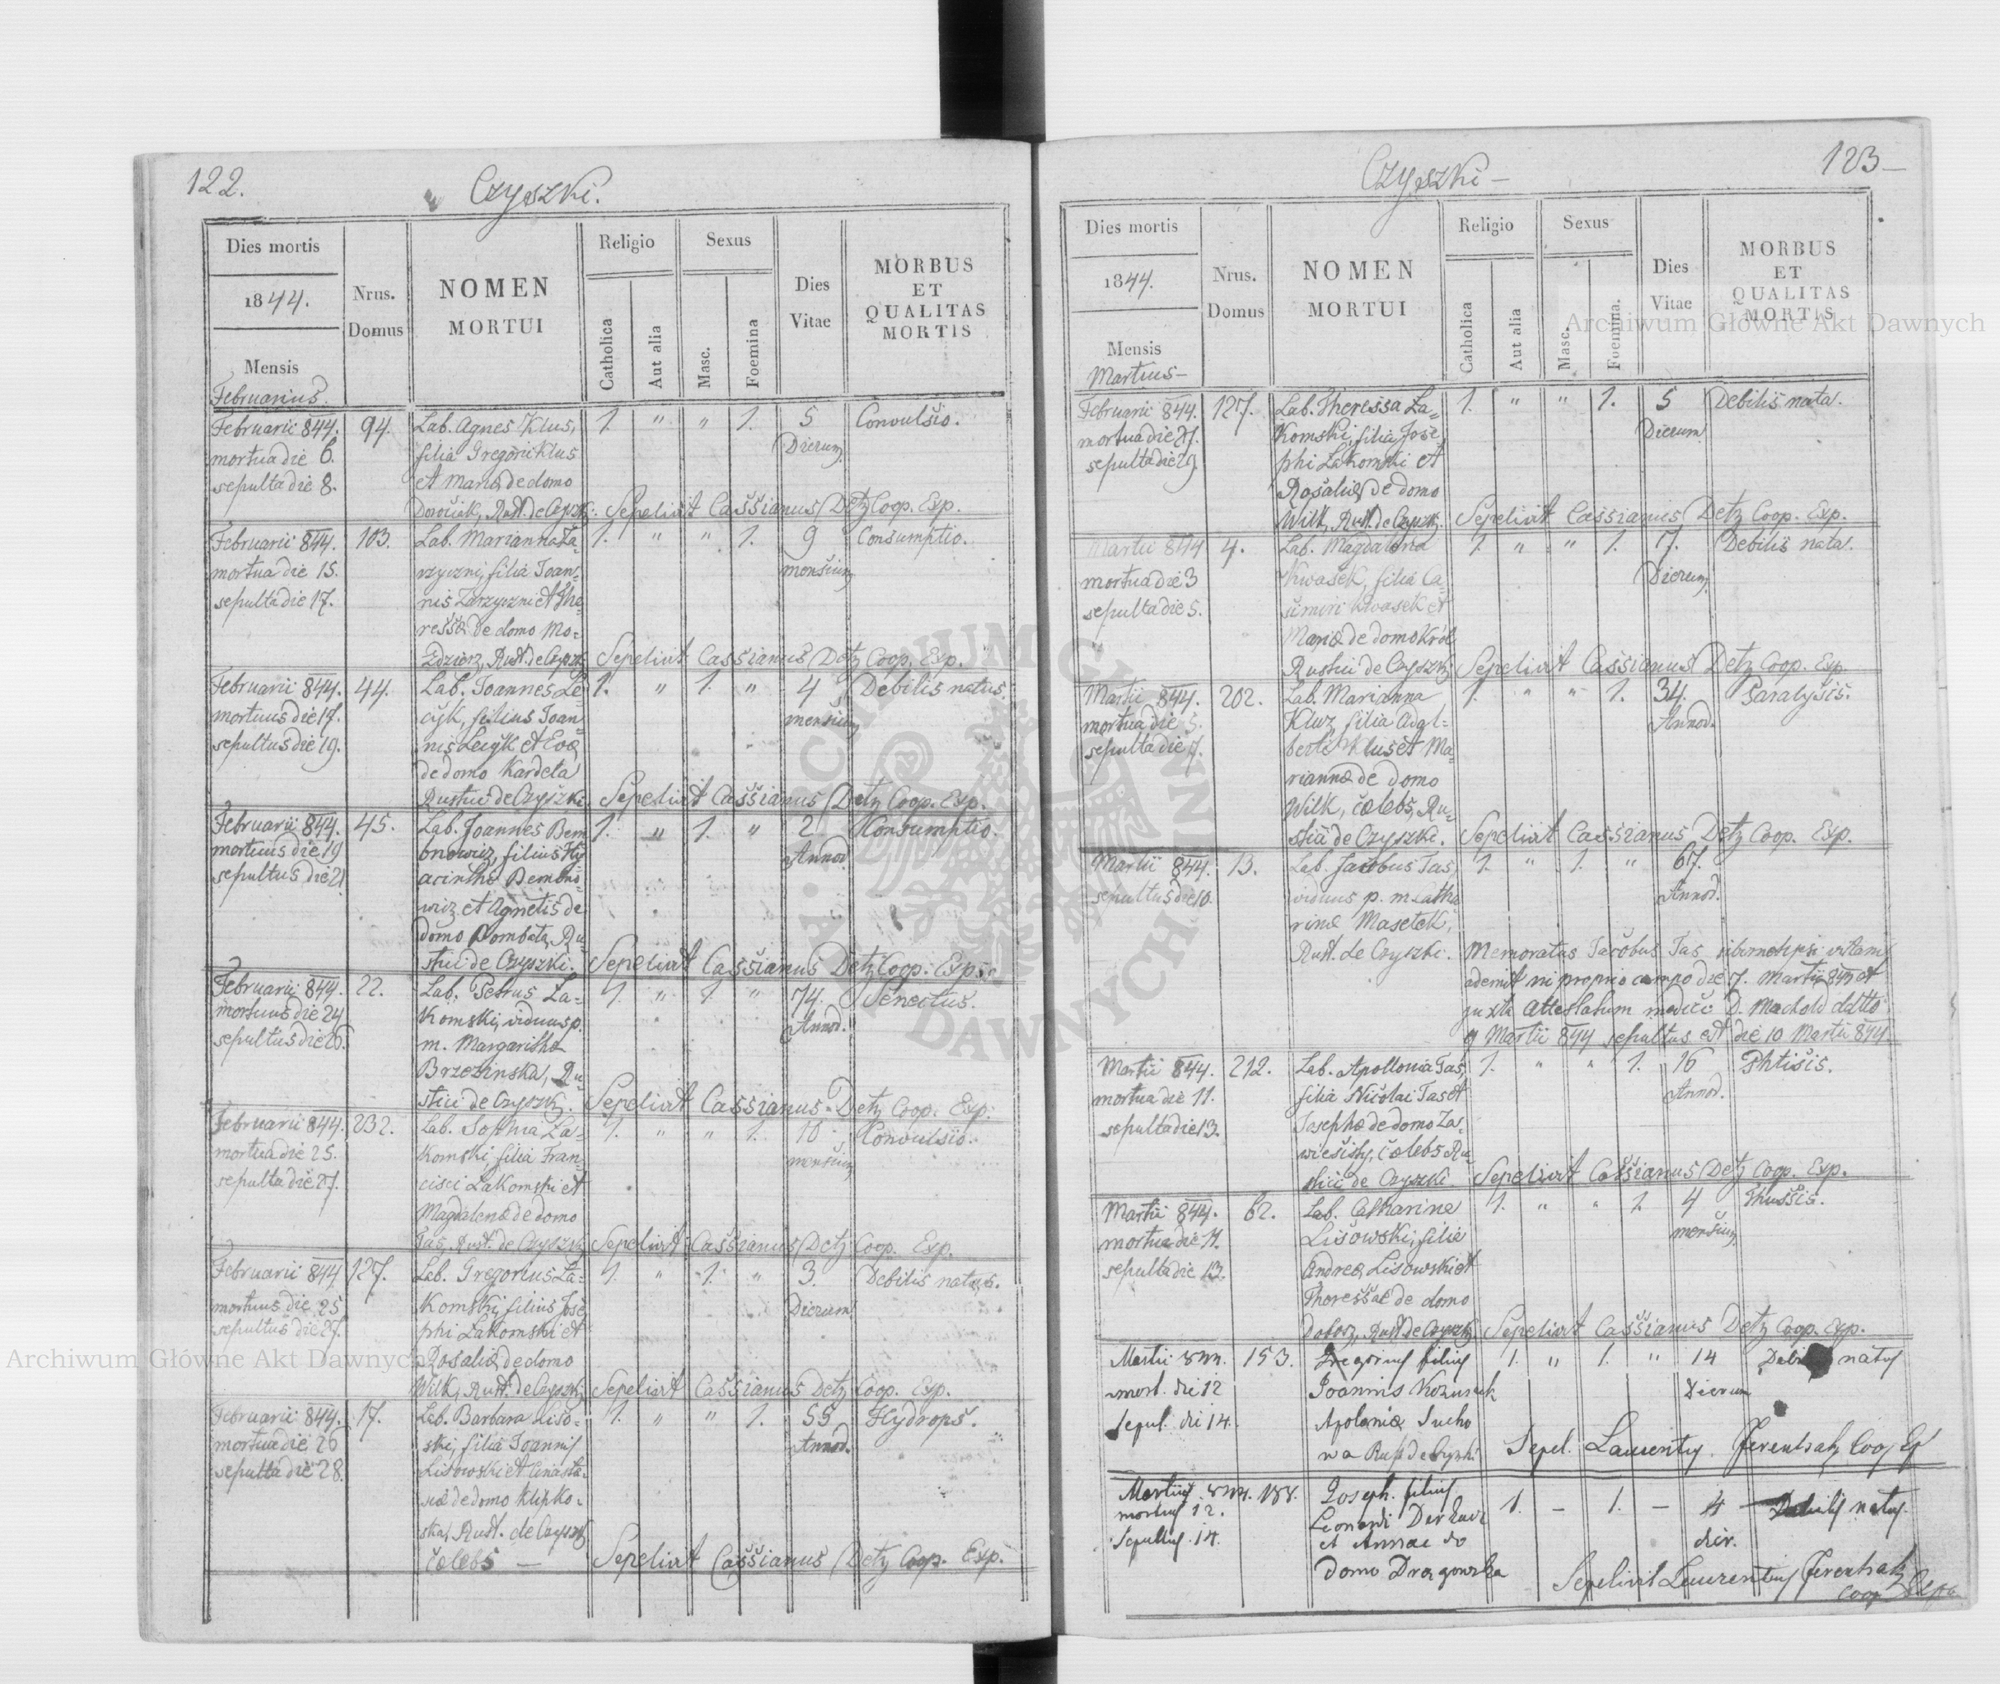 122.
Czyszki.
Dies mortis
1844.
Mensis
Februarius.
Nrus.
Domus
NOMEN
MORTUI
Religio
Catholica
Aut alia
Sexus
Masc.
Foemina
Dies
Vitae
MORBUS
ET
QUALITAS
MORTIS
Februarii 844. 94. Lab. Agnes Klus, 1. " " 1. 5 Convulsio.
mortua die 6. filia Gregorii Klus Dierum
sepulta die 8. et Mariæ de domo
Rust. de Czyszki. Sepelivit Cassianus Detz Coop. Exp.
Februarii 844. 103. Lab. Marianna Za- 1. " " 1. 9 Consumptio.
mortua die 15. rzyczni, filia Joan- mensium
sepulta die 17. nis Zarzyczni et The-
ressæ de domo Mo-
Rust. de Czyszki Sepelivit Cassianus Detz Coop. Exp.
Februarii 844. 44. Lab. Joannes Le- 1. " 1. " 4 Debilis natus.
mortuus die 17. filius Joan- mensium
sepultus die 19. nis et Evæ
de domo Kardeta
Rustici de Czyszki. Sepelivit Cassianus Detz Coop. Exp.
Februarii 844. 45. Lab. Joannes Bem 1. " 1. " 2 Consumptio.
mortuus die 19 bnowicz, filius Hy Annor.
sepultus die 21 acinthi
et Agnetis de
domo Ru-
stici de Czyszki. Sepelivit Cassianus Detz Coop. Exp.
Februarii 844. 22. Lab. Petrus La- 1. " 1. " 74. Senectus.
mortuus die 24 komski, viduus p. Annor.
sepultus die 26. m. Margaritha
Brzezinska, Ru
stici de Czyszki. Sepelivit Cassianus Detz Coop. Exp.
Februarii 844. 232. Lab. Sophia La- 1. " " 1. 10 Convulsio.
mortua die 25. komski, filia Fran- mensium
sepulta die 27. cisci Lakomski et
Magdalenæ de domo
Tas, Rust. de Czyszki Sepelivit Cassianus Detz Coop. Exp.
Februarii 844 127. Lab. Gregorius La- 1. " 1. " 3. Debilis natus.
mortuus die 25 komski, filius Jose Dierum
sepultus die 27. phi Lakomski et
Rosaliæ de domo
Wilk, Rust. de Czyszki Sepelivit Cassianus Detz Coop. Exp.
Februarii 844. 17. Lab. Barbara Liso- 1. " " 1. 55 Hydrops.
mortua die 26 ski, filia Joannis Annor.
sepulta die 28. Lisowski et Anasta-
siæ de domo Klipko-
ska, Rust. de Czyszki
cœlebs — Sepelivit Cassianus Detz Coop. Exp.
123—
Czyszki—
Dies mortis
1844.
Mensis
Martius—
Nrus.
Domus
NOMEN
MORTUI
Religio
Catholica
Aut alia
Sexus
Masc.
Foemina.
Dies
Vitae
MORBUS
ET
QUALITAS
MORTIS
Februarii 844. 127. Lab. Theressa La- 1. " " 1. 5 Debilis nata.
mortua die 27. komski, filia Jose- Dierum
sepulta die 29. phi Lakomski et
Rosaliæ de domo
Wilk, Rust. de Czyszki. Sepelivit Cassianus Detz Coop. Exp.
Martii 844 4. Lab. Magdalena 1. " " 1. 7. Debilis nata.
mortua die 3 Kwasek, filia Ca- Dierum
sepulta die 5. simiri Kwasek et
Mariæ de domo Król
Rustici de Czyszki Sepelivit Cassianus Detz Coop. Exp.
Martii 844. 202. Lab. Marianna 1. " " 1. 34. Paralysis.
mortua die 5. Klus, filia Adal- Annor.
sepulta die 7. berti Klus et Ma-
riannæ de domo
Wilk, cœlebs, Ru-
stici de Czyszki. Sepelivit Cassianus Detz Coop. Exp.
Martii 844. 13. Lab. Jacobus Tas, 1. " 1. " 67.
sepultus die 10. viduus p. m. Catha Annor.
rinæ Masetek,
Rust. de Czyszki. Memoratus Jacobus Tas sibimet ipsi vitam
ademit in proprio campo die 7. Martii 844 et
juxta attestatum medici D. Machold ddtto
9 Martii 844 sepultus est die 10 Martii 844
Martii 844. 212. Lab. Apollonia Tas, 1. " " 1. 16 Phtisis.
mortua die 11. filia Nicolai Tas et Annor.
sepulta die 13. Josephæ de domo Za-
cœlebs Ru-
stici de Czyszki Sepelivit Cassianus Detz Coop. Exp.
Martii 844. 62. Lab. Catharina 1. " " 1. 4 Thussis.
mortua die 11. Lisowski, filia mensium
sepulta die 13. Andreæ Lisowski et
Theressae de domo
Dobosz, Rust. de Czyszki Sepelivit Cassianus Detz Coop. Exp.
Martii 844. 153. Gregorius filius 1. " 1. " 14 natus
mort. die 12 Joannis Dierum
sepul. die 14. Apoloniæ Sucho
wa Rust de Czyszki Sepel. Laurentius Coop Exp
Martius 844. 188. Joseph. filius 1. – 1. – 4 Debilis natus.
mortus 12. Leonardi dier.
Sepultus. 14. et Annae de
domo Dragowska Sepelivit Laurentius
Coop
Archiwum Główne Akt Dawnych
Archiwum Główne Akt Dawnych
ARCHIWUM GŁÓWNE AKT DAWNYCH